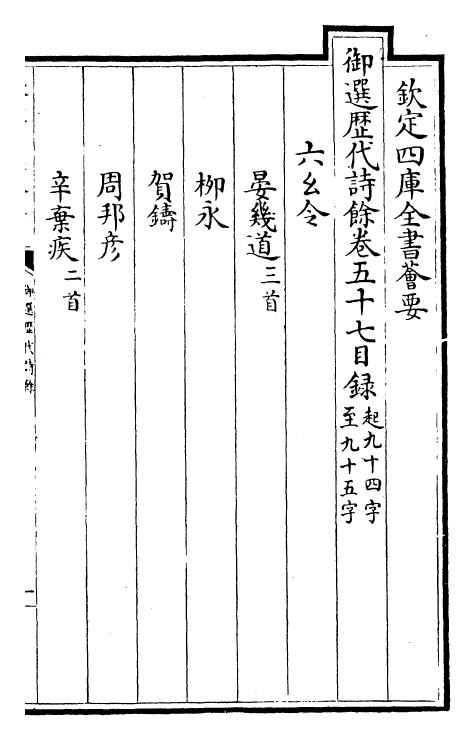 欽定四庫全書薈要
御選歴代詩餘卷五十七目録起九十四字至九十五字
六幺令
晏幾道三首
栁永
賀鑄
周邦彦
辛棄疾二首
御選歴代詩餘
一